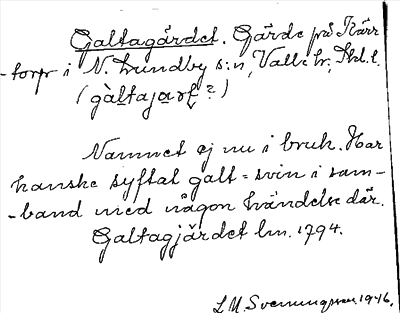 Galtagärdet. Gärde på Kärr
-torp i N. Lundby s:n, Valle hr, Skl. l.
(gàltajaṛt?)
Namnet ej nu i bruk. Har
kanske syftat galt = svin i sam-
-band med någon händelse där.
Galtagjärdet lm. 1794.
L M. Svenungsson 1946.